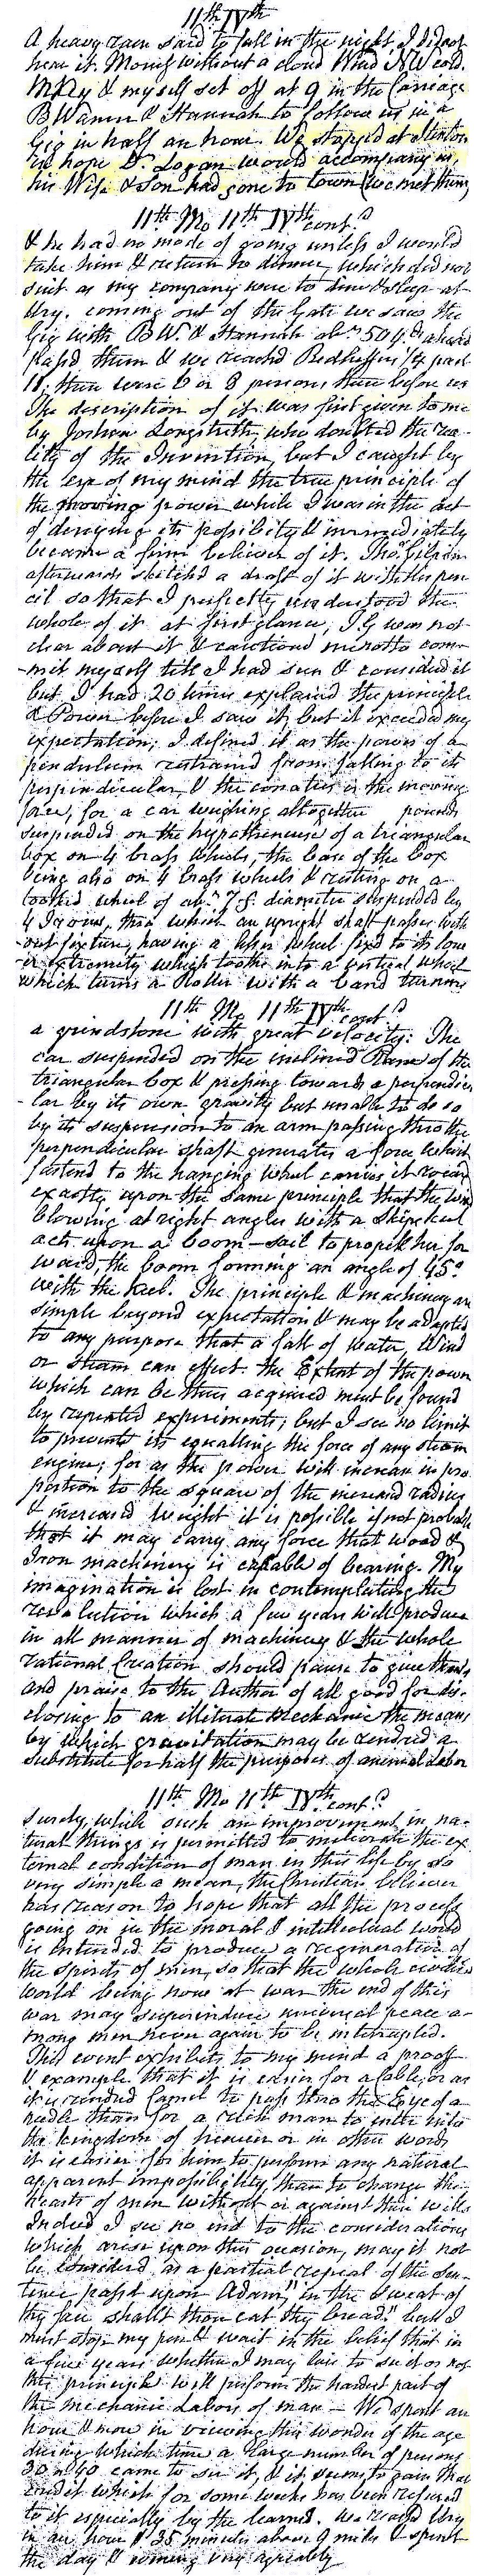 11th IVth
A heavy rain said to fall in the night, I did not
hear it. Morning without a cloud Wind NW cold.
Mary & myself set off at 9 in the Carriage
B Warner & Hannah to follow us in a
Gig in half an hour. We stopped at Stenton
in hope Dr. Logan would accompany us,
his Wife & Son had gone to town (we met them)
11th Mo 11th IVth contd
& he had no mode of going unless I would
take him & return to dinner, which did not
suit as my company were to dine & sleep at
Ury. coming out of the Gate we saw the
Gig with BW. & Hannah abt 50 yds ahead
passd them & we reachd Redheffers 1/4 past
11; there were 6 or 8 persons there before us
The description of it was first given to me
by Joshua Longstreth, who doubted the rea-
lity of the Invention, but I caught by
the eye of my mind the true principle of
the moving power while I was in the act
of denying its possibility & immediately
became a firm believer of it. Thos. Gilpin
afterwards sketchd a draft of it with his pen
cil so that I perfectly understood the
whole of it at first glance, T.G was not
clear about it & cautiond me not to com-
-mit myself till I had seen & considered it
but I had 20 times explained the principle
& Power before I saw it, but it exceeded my
expectation; I defined it as the power of a
pendulum restraind from falling to its
perpendicular, & the conatus is the moving
force, for a car weighing altogether pounds
suspended on the hypothenuse of a triangular
box on 4 brass wheels, the base of the box
being also on 4 brass wheels & resting on a
toothed wheel of abt 7 f. diameter suspended by
4 Irons, thro which an upright shaft passes with
-out fixture, having a wheel fixd to its low
-er extremity which tooths into a vertical wheel
which turns a Roller with a band turning
11th Mo 11th IVth contd
a grindstone with great velocity: The
car suspended on the inclined Plane of the
triangular box & pressing towards a perpendicu
-lar by its own gravity but unable to do so
by its suspension to an arm passing thro the
perpendicular shaft generates a force which
fastend to the hanging wheel carries it round
exactly upon the same principle that the wind
blowing at right angles with a Ships keel
acts upon a boom-sail to propell her for
ward, the boom forming an angle of 45°
with the keel. The principle & machinery are
simple beyond expectation & may be adapted
to any purpose that a fall of water, Wind
or steam can effect. the Extent of the power
which can be thus acquired must be found
by repeated experiments; but I see no limit
to prevent its equalling the force of any steam
engine; for as the power will increase in pro
portion to the square of the increased radius
& increased weight it is possible if not probable
that it may carry any force that wood &
Iron machinery is capable of bearing. My
imagination is lost in contemplating the
revolution which a few years will produce
in all manner of machinery & the whole
rational Creation should pause to give thanks
and praise to the Author of all good for dis-
closing to an illiterate Mechanic the means
by which gravitation may be rendred a
substitute for half the purposes of animal labor
11th Mo 11th IVth contd
surely, while such an improvement in na-
tural things is permitted to meliorate the ex
ternal condition of man in this life by so
very simple a mean, the Christian believer
has reason to hope that all the process
going on in the moral & intellectual world
is intended to produce a regeneration of
the spirits of men, so that the whole civilized
world being now at war the end of this
war may superinduce universal peace a-
mong men never again to be interrupted.
This event exhibits to my mind a proof
& example that it is easier for a cable, or as
it is rendred Camel to pass thro the Eye of a
needle than for a rich man to enter into
the kingdom of heaven or in other words
it is easier for him to perform any natural
apparent impossibility than to change the
hearts of men without or against their wills
Indeed I see no end to the considerations
which arise upon this occasion, may it not
be considered as a partial repeal of the sen-
tence passd upon Adam, "in the Sweat of
thy face shalt thou eat thy bread," but I
must stop my pen & wait in the belief that in
a few years whether I may live to see it or not
this principle will perform the hardest part of
the mechanic Labors of man — We spent an
hour & more in viewing this wonder of the age
during which time a large number of persons
30 or 40 came to see it, & it seems to gain that
credit which for some weeks has been refused
to it especially by the learned. we reachd Ury
in an hour & 25 minutes about 9 miles & spent
the day & evening very agreeably